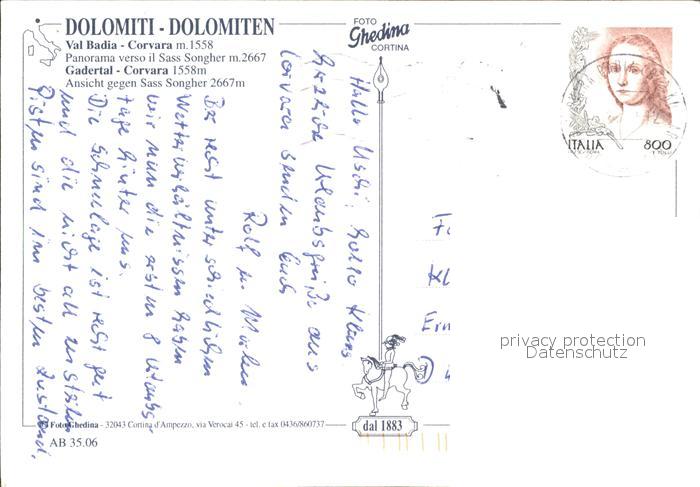 DOLOMITI - DOLOMITEN
Val Badia - Corvara m.1558
Panorama verso il Sass Songher m.2667
Gadertal - Corvara 1558m
Ansicht gegen Sass Songher 2667m
FOTO
Ghedina
CORTINA
ITALIA 800
Hallo Uschi, hallo Klaus
herzliche Urlaubsgrüße aus
Corvara senden Euch
Rolf u.
Bei recht unterschiedlichen
Wetterverhältnissen haben
wir nun die ersten 8 Urlaubs-
tage hinter uns.
Die Schneelage ist recht gut
und die nicht all zu steilen
Pisten sind im besten Zustand.
Kl
privacy protection
Datenschutz
Foto Ghedina - 32043 Cortina d'Ampezzo, via Verocai 45 - tel. e fax 0436/860737
dal 1883
AB 35.06